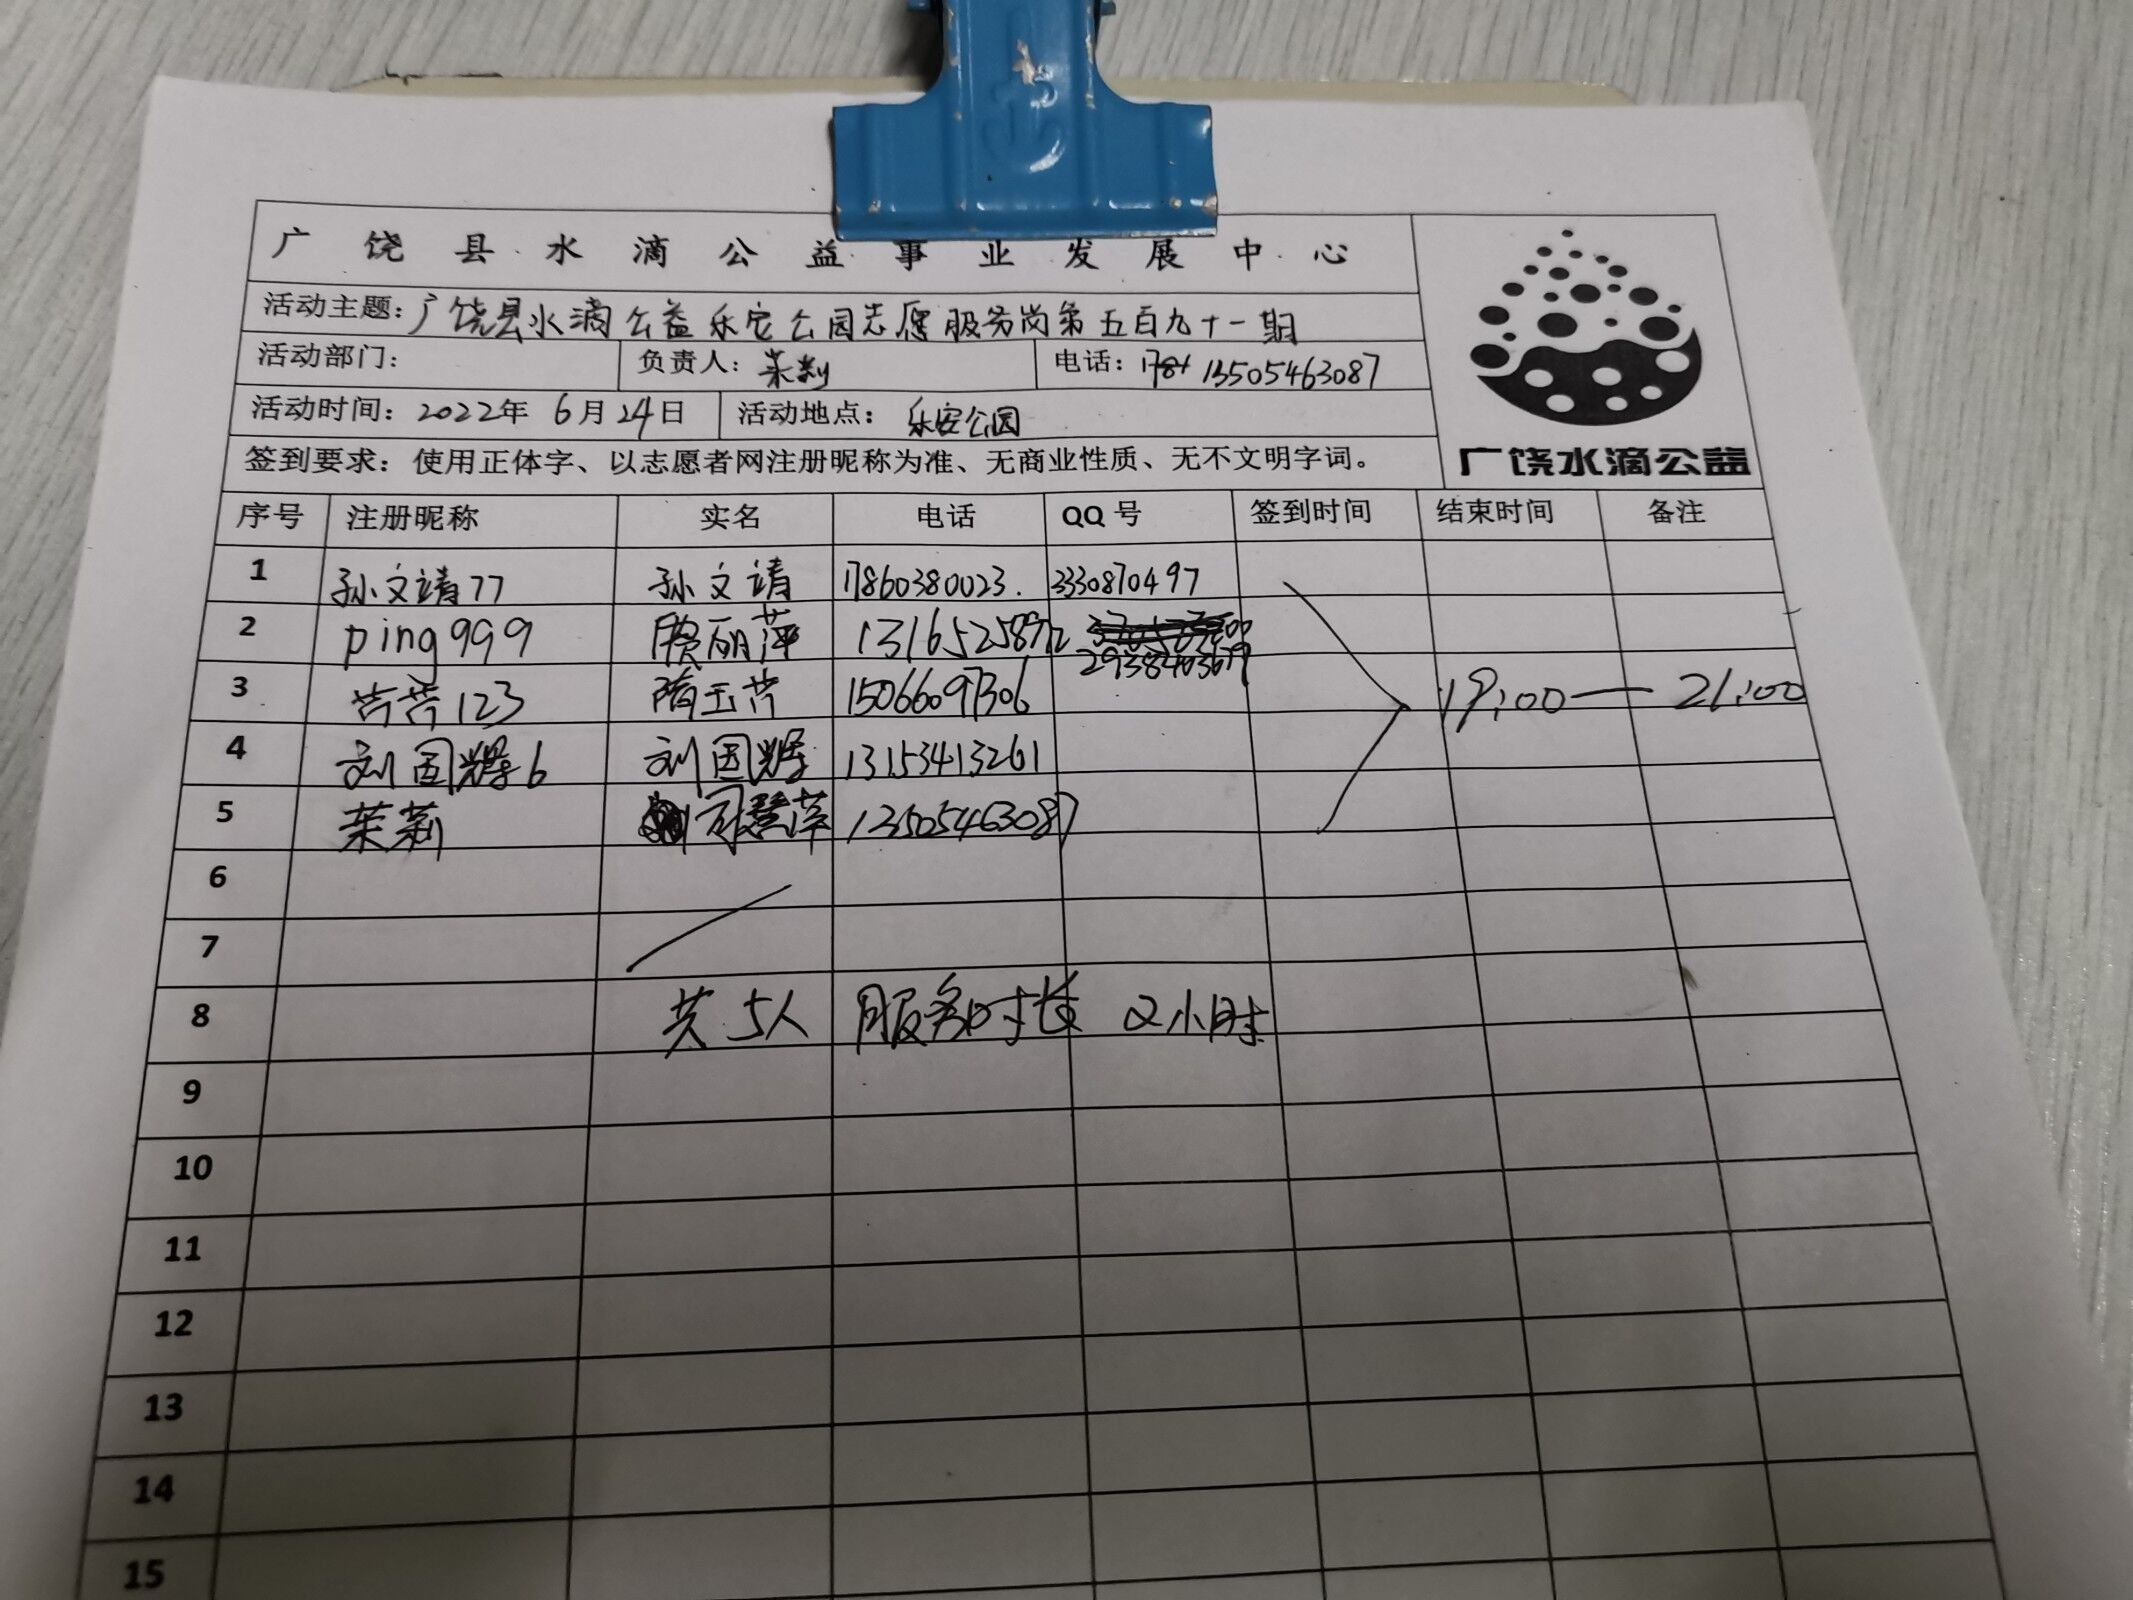 广饶县水滴公益事业发展中心
活动主题：广饶县水滴公益乐安公园志愿服务岗第五百九十一期
活动部门： 负责人：茉莉 电话：13505463087
活动时间：2022年6月24日 活动地点：乐安公园
签到要求：使用正体字、以志愿者网注册昵称为准、无商业性质、无不文明字词。
广饶水滴公益
序号 注册昵称 实名 电话 QQ号 签到时间 结束时间 备注
1 孙文靖77 孙文靖 17860380023. 2330870497
2 ping999 丽萍 13165258972
2938403679
3 苦苦123 隋玉芹 15066097306
19:00—21:00
4 刘国辉6 刘国辉 13153413261
5 茉莉 13505463087
6
7
8 共5人 服务时长 2小时
9
10
11
12
13
14
15